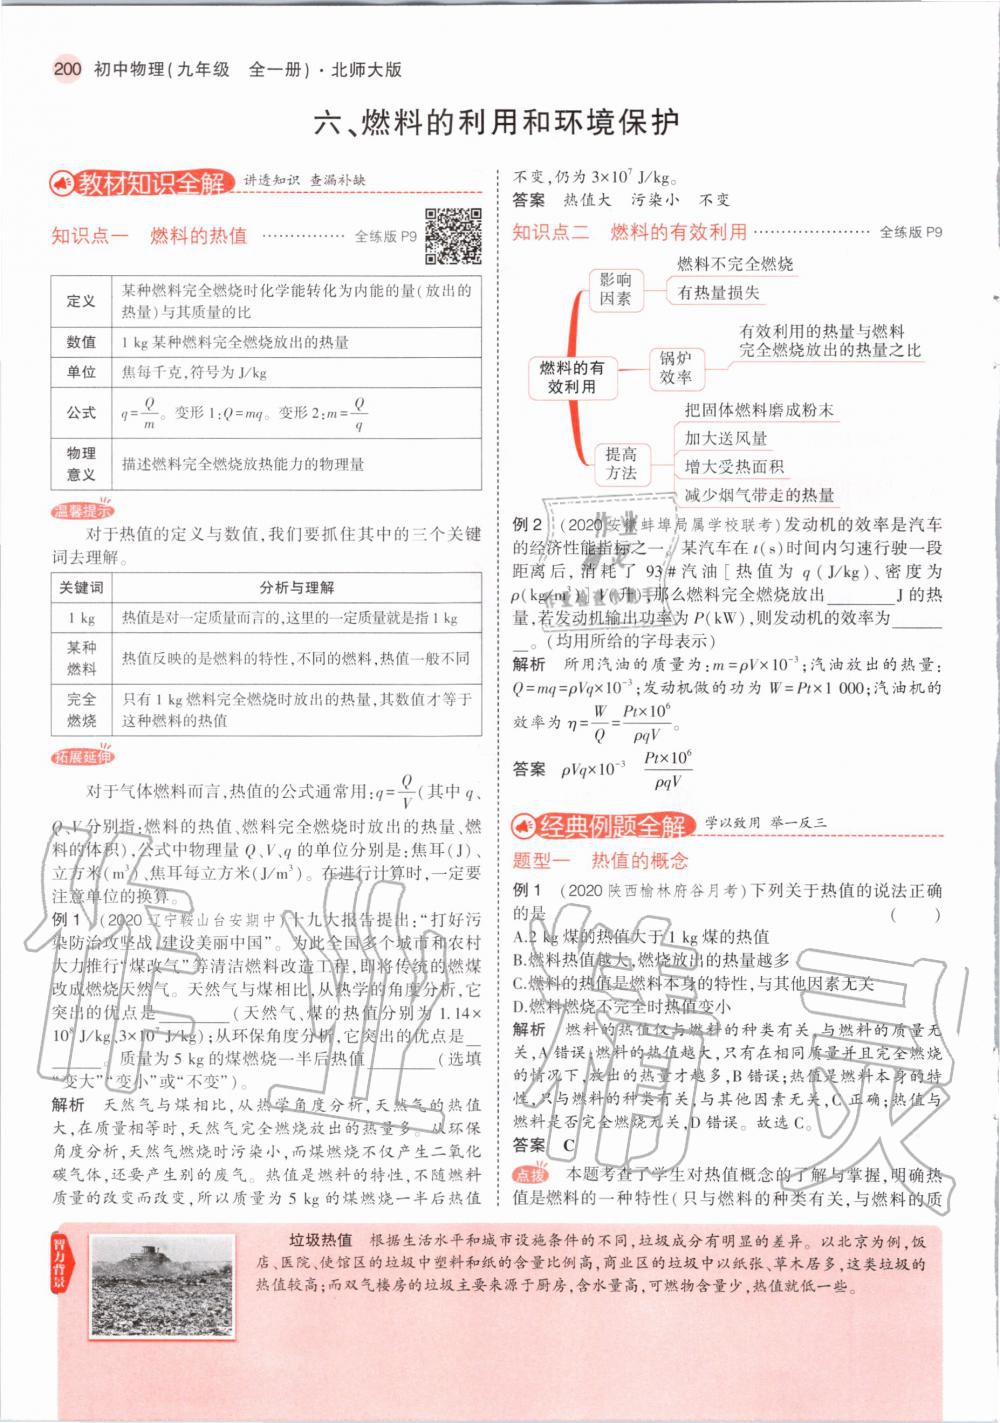 200 初中物理(九年级 全一册)·北师大版
六、燃料的利用和环境保护
教材知识全解 讲透知识 查漏补缺
知识点一 燃料的热值 …………… 全练版 P9
定义 某种燃料完全燃烧时化学能转化为内能的量(放出的
热量)与其质量的比
数值 1 kg 某种燃料完全燃烧放出的热量
单位 焦每千克,符号为 J/kg
公式 q=Q/m。变形 1:Q=mq。变形 2:m=Q/q
物理
意义 描述燃料完全燃烧放热能力的物理量
温馨提示
对于热值的定义与数值,我们要抓住其中的三个关键
词去理解。
关键词 分析与理解
1 kg 热值是对一定质量而言的,这里的一定质量就是指 1 kg
某种
燃料 热值反映的是燃料的特性,不同的燃料,热值一般不同
完全
燃烧 只有 1 kg 燃料完全燃烧时放出的热量,其数值才等于
这种燃料的热值
拓展延伸
对于气体燃料而言,热值的公式通常用:q=Q/V(其中 q、
Q、V 分别指:燃料的热值、燃料完全燃烧时放出的热量、燃
料的体积),公式中物理量 Q、V、q 的单位分别是:焦耳(J)、
立方米(m³)、焦耳每立方米(J/m³)。在进行计算时,一定要
注意单位的换算。
例 1 (2020 辽宁鞍山台安期中)十九大报告提出:“打好污
染防治攻坚战,建设美丽中国”。为此全国多个城市和农村
大力推行“煤改气”等清洁燃料改造工程,即将传统的燃煤
改成燃烧天然气。天然气与煤相比,从热学的角度分析,它
突出的优点是________(天然气、煤的热值分别为 1.14×
10⁸ J/kg、3×10⁷ J/kg);从环保角度分析,它突出的优点是_
______。质量为 5 kg 的煤燃烧一半后热值________(选填
“变大”“变小”或“不变”)。
解析 天然气与煤相比,从热学角度分析,天然气的热值
大,在质量相等时,天然气完全燃烧放出的热量多。从环保
角度分析,天然气燃烧时污染小,而煤燃烧不仅产生二氧化
碳气体,还要产生别的废气。热值是燃料的特性,不随燃料
质量的改变而改变,所以质量为 5 kg 的煤燃烧一半后热值
不变,仍为 3×10⁷ J/kg。
答案 热值大 污染小 不变
知识点二 燃料的有效利用 ………………… 全练版 P9
燃料的有
效利用
影响
因素
燃料不完全燃烧
有热量损失
锅炉
效率
有效利用的热量与燃料
完全燃烧放出的热量之比
提高
方法
把固体燃料磨成粉末
加大送风量
增大受热面积
减少烟气带走的热量
例 2 (2020 安徽蚌埠局属学校联考)发动机的效率是汽车
的经济性能指标之一。某汽车在 t(s)时间内匀速行驶一段
距离后,消耗了 93#汽油[热值为 q(J/kg)、密度为
ρ(kg/m³)] V(升),那么燃料完全燃烧放出________J 的热
量,若发动机输出功率为 P(kW),则发动机的效率为______
__。(均用所给的字母表示)
解析 所用汽油的质量为:m=ρV×10⁻³;汽油放出的热量:
Q=mq=ρVq×10⁻³;发动机做的功为 W=Pt×1 000;汽油机的
效率为 η=W/Q=Pt×10⁶/ρqV。
答案 ρVq×10⁻³ Pt×10⁶/ρqV
经典例题全解 学以致用 举一反三
题型一 热值的概念
例 1 (2020 陕西榆林府谷月考)下列关于热值的说法正确
的是 ( )
A.2 kg 煤的热值大于 1 kg 煤的热值
B.燃料热值越大,燃烧放出的热量越多
C.燃料的热值是燃料本身的特性,与其他因素无关
D.燃料燃烧不完全时热值变小
解析 燃料的热值仅与燃料的种类有关,与燃料的质量无
关,A 错误;燃料的热值越大,只有在相同质量并且完全燃烧
的情况下,放出的热量才越多,B 错误;热值是燃料本身的特
性,只与燃料的种类有关,与其他因素无关,C 正确;热值与
燃料是否完全燃烧无关,D 错误。故选 C。
答案 C
点拨 本题考查了学生对热值概念的了解与掌握,明确热
值是燃料的一种特性(只与燃料的种类有关,与燃料的质
智力背景
垃圾热值 根据生活水平和城市设施条件的不同,垃圾成分有明显的差异。以北京为例,饭
店、医院、使馆区的垃圾中塑料和纸的含量比例高,商业区的垃圾中以纸张、草木居多,这类垃圾的
热值较高;而双气楼房的垃圾主要来源于厨房,含水量高,可燃物含量少,热值就低一些。
作业精灵